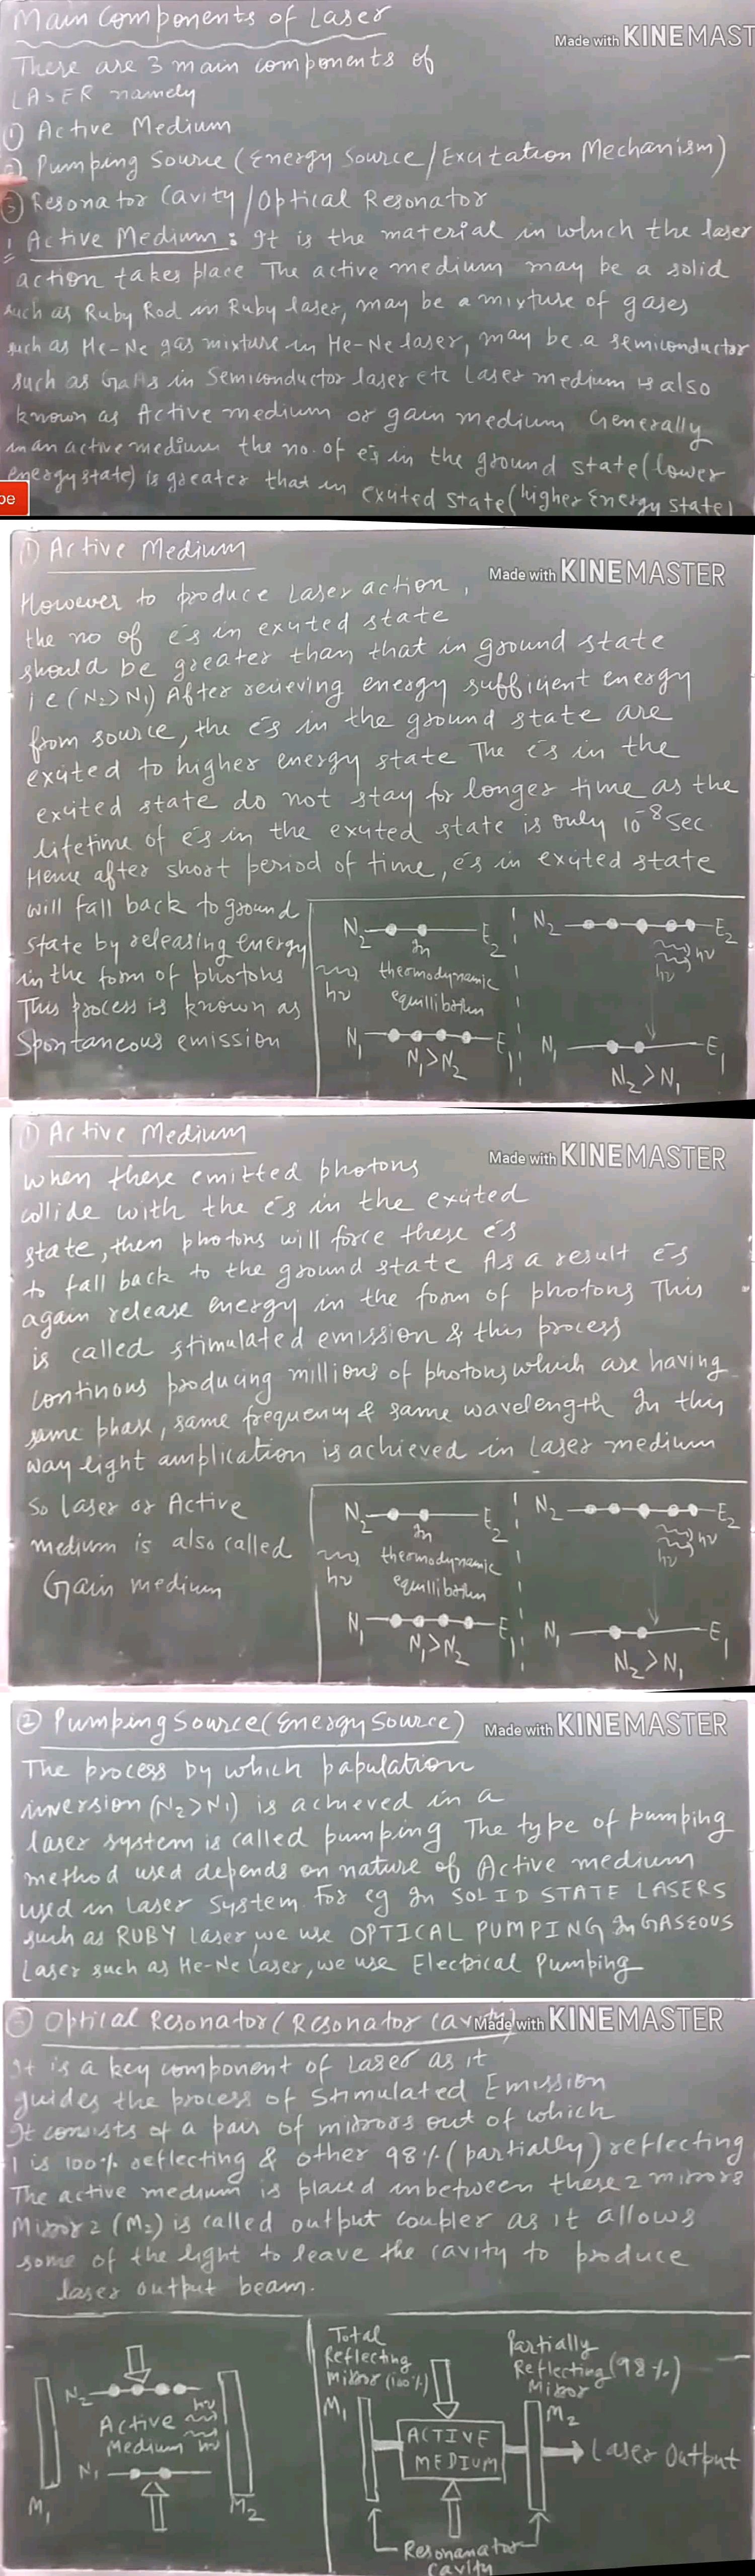 Main Components of Laser
Made with KINEMAST
There are 3 main components of
LASER namely
① Active Medium
② Pumping Source (Energy Source/Excitation Mechanism)
③ Resonator Cavity/Optical Resonator
1 Active Medium: It is the material in which the laser
action takes place The active medium may be a solid
such as Ruby Rod in Ruby laser, may be a mixture of gases
such as He-Ne gas mixture in He-Ne laser, may be a semiconductor
such as GaAs in Semiconductor laser etc Laser medium is also
known as Active medium or gain medium Generally
in an active medium the no. of e⁻s in the ground state (lower
energy state) is greater that in exited state (higher Energy state)
be
① Active Medium
Made with KINEMASTER
However to produce Laser action,
the no of e⁻s in exited state
should be greater than that in ground state
i e (N₂>N₁) After recieving energy sufficient energy
from source, the e⁻s in the ground state are
exited to higher energy state The e⁻s in the
exited state do not stay for longer time as the
lifetime of e⁻s in the exited state is only 10⁻⁸ sec
Hence after short period of time, e⁻s in exited state
will fall back to ground
state by releasing energy
in the form of photons
This process is known as
Spontaneous emission
N₂ E₂ N₂ E₂
In
thermodynamic
equillibrium
hν hν hν
N₁ E₁ N₁ E₁
N₁>N₂ N₂>N₁
① Active Medium
Made with KINEMASTER
when these emitted photons
collide with the e⁻s in the exited
state, then photons will force these e⁻s
to fall back to the ground state As a result e⁻s
again release energy in the form of photons This
is called stimulated emission & this process
continous producing millions of photons which are having
same phase, same frequency & same wavelength In this
way light amplication is achieved in Laser medium
So laser or Active
medium is also called
Gain medium
N₂ E₂ N₂ E₂
In
thermodynamic
equillibrium
hν hν hν
N₁ E₁ N₁ E₁
N₁>N₂ N₂>N₁
② Pumping Source (Energy Source)
Made with KINEMASTER
The process by which papulation
inversion (N₂>N₁) is achieved in a
laser system is called pumping The type of pumping
method used depends on nature of Active medium
used in Laser System. For eg In SOLID STATE LASERS
such as RUBY Laser, we use OPTICAL PUMPING In GASEOUS
Laser such as He-Ne Laser, we use Electrical Pumping
③ Optical Resonator (Resonator cavity)
Made with KINEMASTER
It is a key component of Laser as it
guides the process of Stimulated Emission
It consists of a pair of mirrors out of which
1 is 100% reflecting & other 98% (partially) reflecting
The active medium is placed inbetween these 2 mirrors
Mirror 2 (M₂) is called output coupler as it allows
some of the light to leave the cavity to produce
laser output beam.
N₂
hν
Active
Medium hν
N₁
M₁ M₂
Total
Reflecting
Mirror (100%)
M₁
Partially
Reflecting (98%)
Mirror
M₂
ACTIVE
MEDIUM
Laser Output
Resonanator
cavity